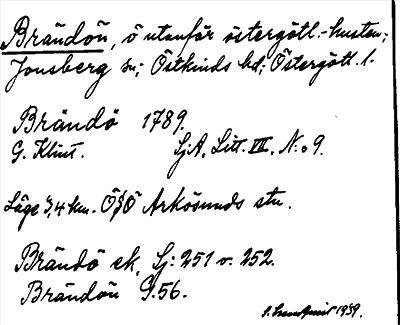 Brändön, ö utanför östergötl.-kusten;
Jonsberg sn; Östkinds hd; Östergötl. l.
Brändö 1789.
G. Klint. Sj.A. Litt. VII, N:o 9.
Läge 3,4 km. ÖSÖ Arkösunds stn.
Brändö ek. Sj: 251 v. 252.
Brändön G.56.
1939.